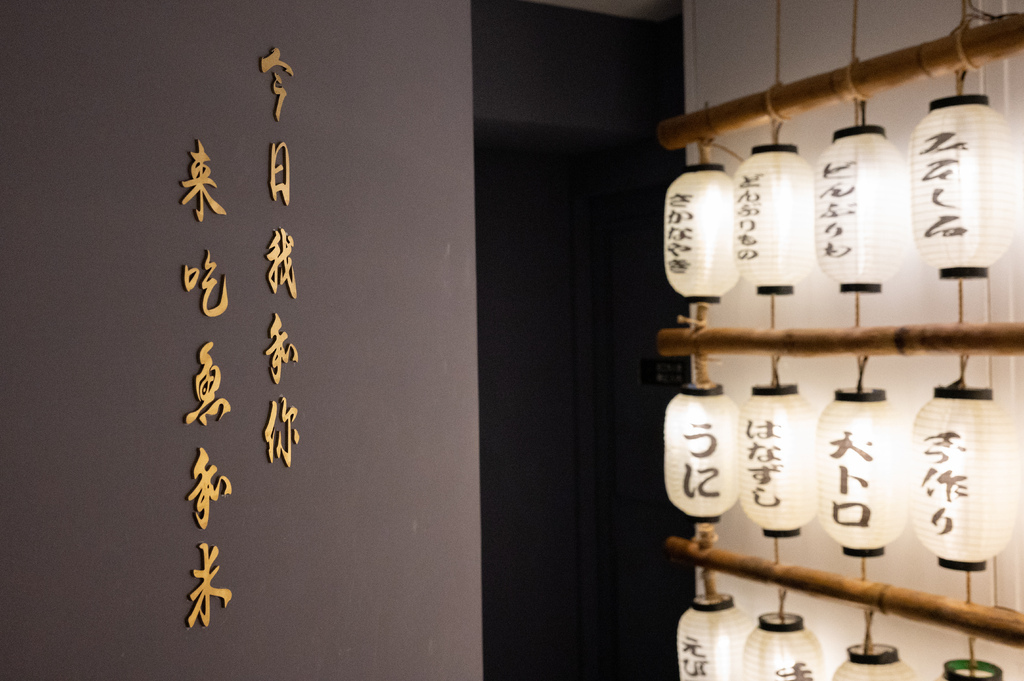 今日我和你
来吃魚和米
さかなやき
どんぶりもの
どんぶりも
うに
はなずし
大トロ
手作り
えび